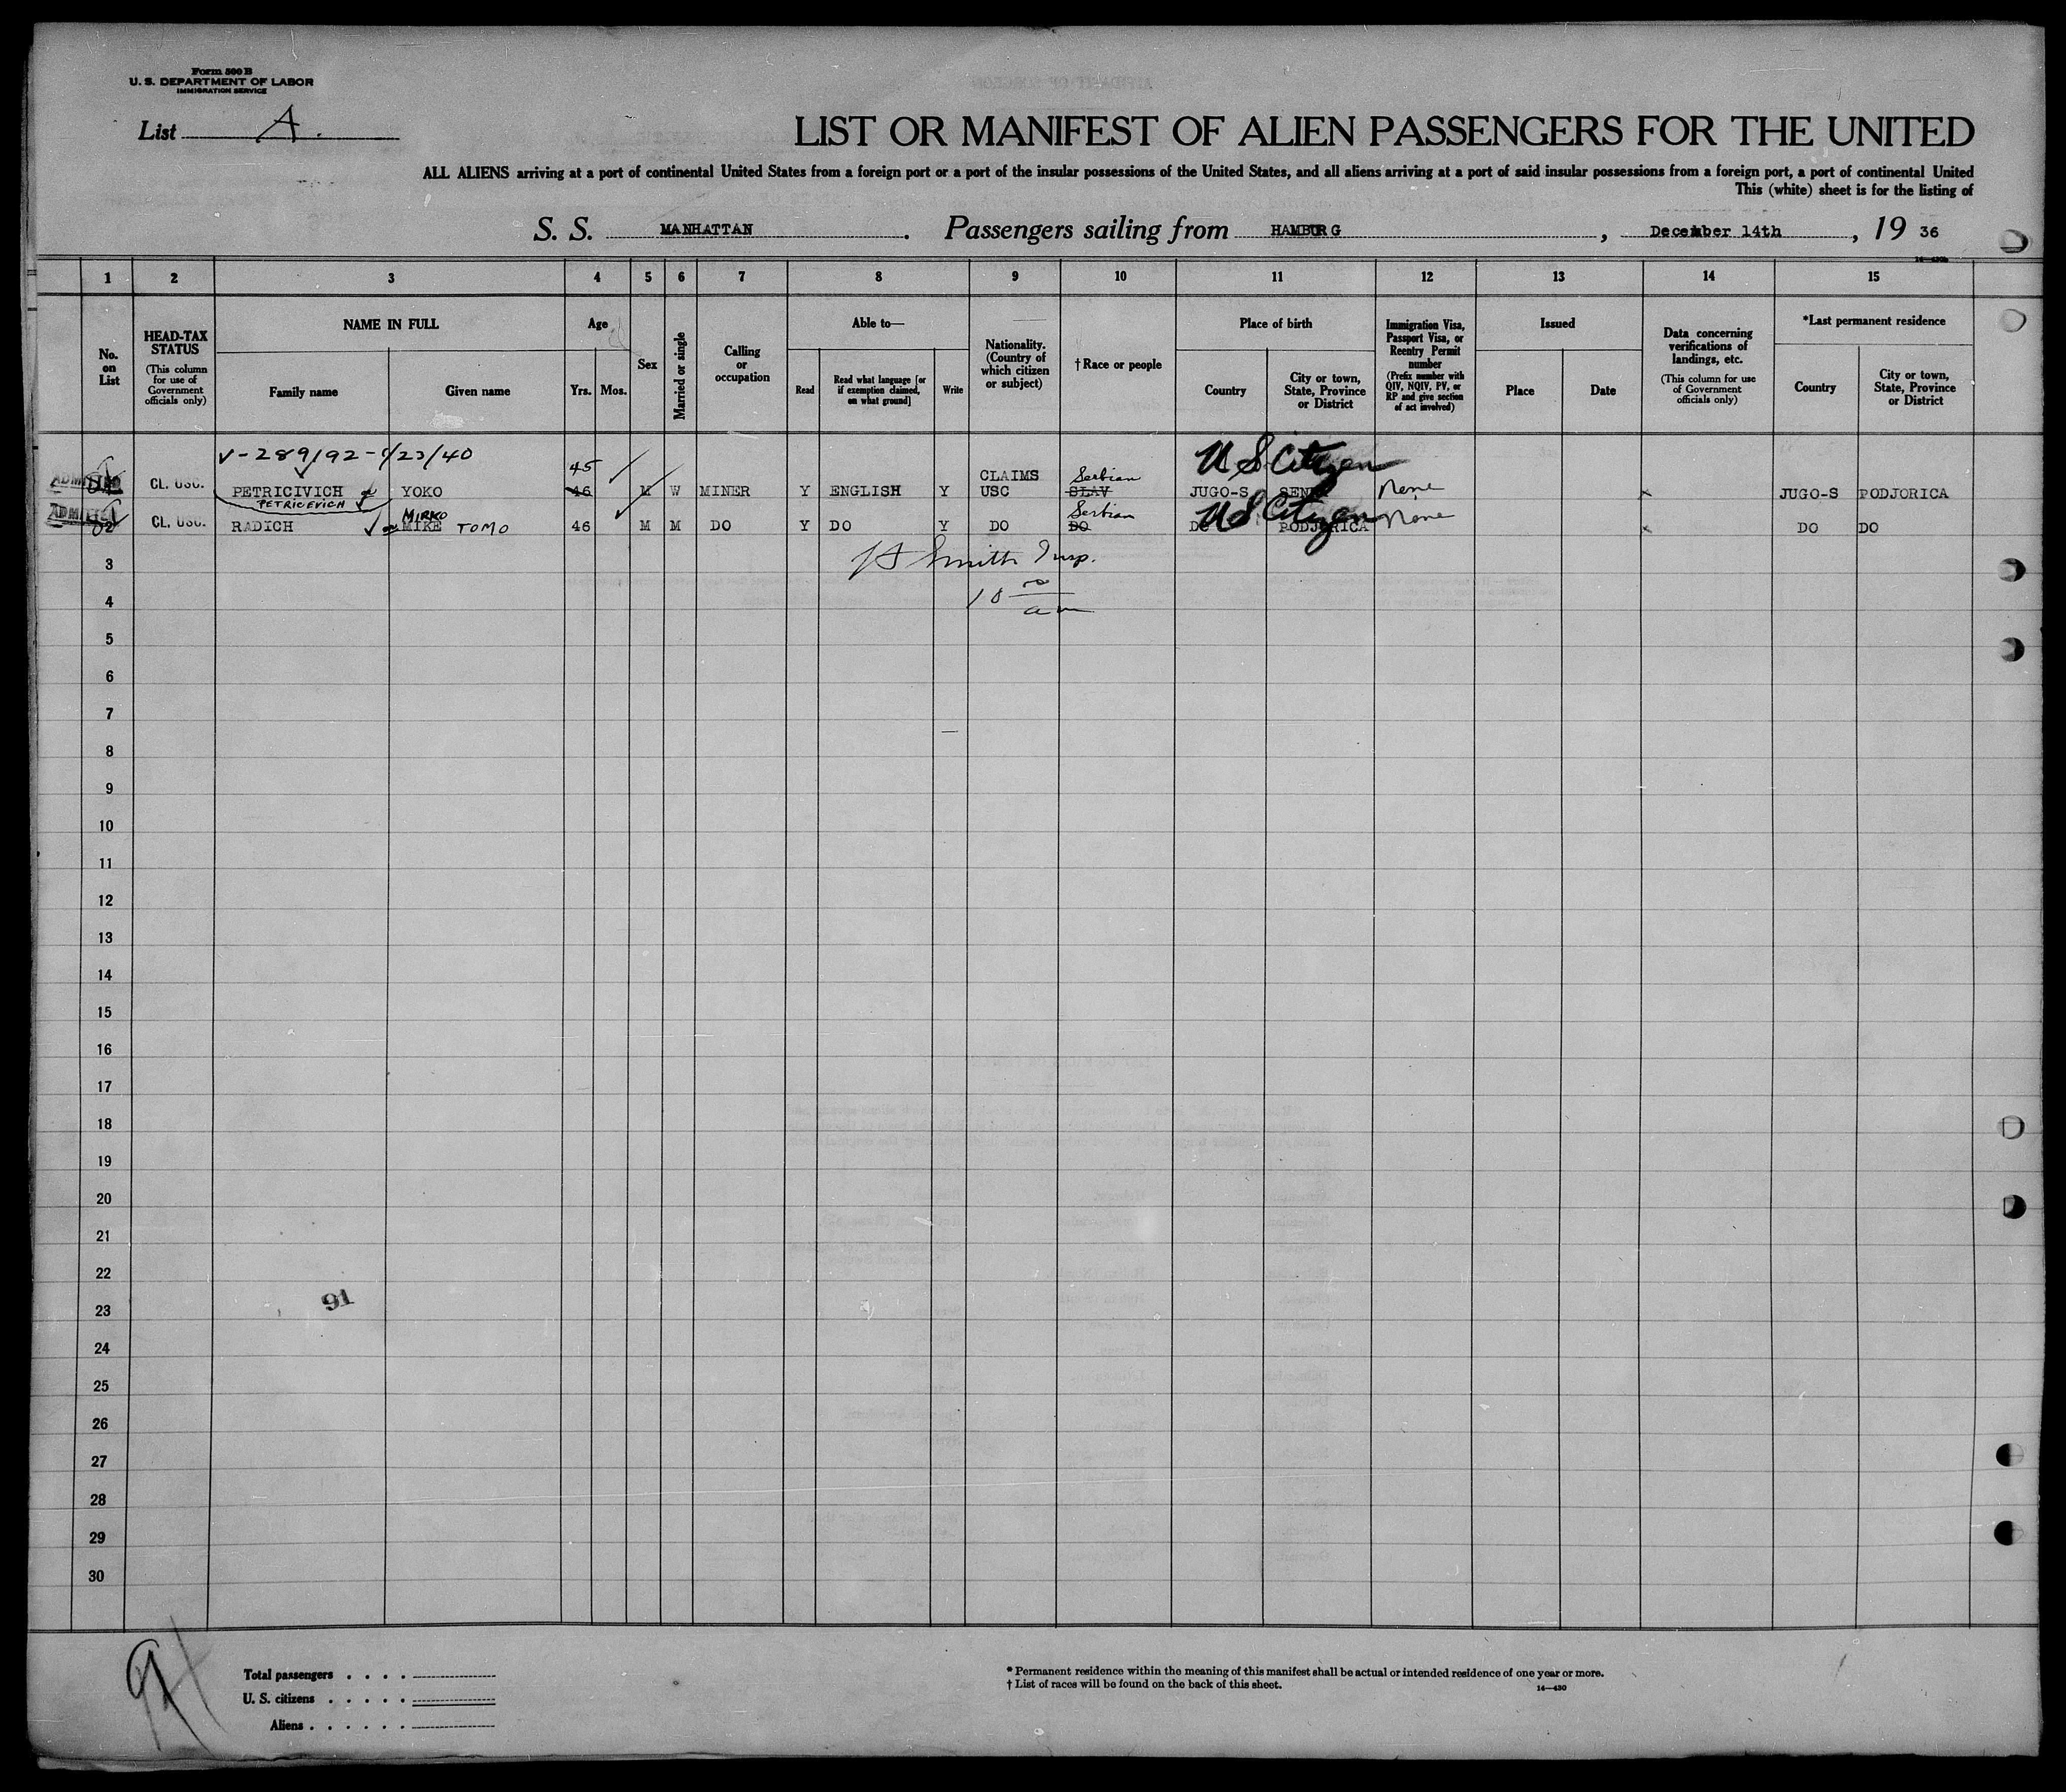 Form 500 B
U. S. DEPARTMENT OF LABOR
IMMIGRATION SERVICE
List A.
LIST OR MANIFEST OF ALIEN PASSENGERS FOR THE UNITED
ALL ALIENS arriving at a port of continental United States from a foreign port or a port of the insular possessions of the United States, and all aliens arriving at a port of said insular possessions from a foreign port, a port of continental United
This (white) sheet is for the listing of
S. S. MANHATTAN. Passengers sailing from HAMBURG, December 14th, 19 36
1 2 3 4 5 6 7 8 9 10 11 12 13 14 15
No. on List
HEAD-TAX STATUS
(This column for use of Government officials only)
NAME IN FULL
Family name Given name
Age
Yrs. Mos.
Sex
Married or single
Calling or occupation
Able to—
Read
Read what language [or if exemption claimed, on what ground]
Write
Nationality. (Country of which citizen or subject)
† Race or people
Place of birth
Country
City or town, State, Province or District
Immigration Visa, Passport Visa, or Reentry Permit number
(Prefix number with QIV, NQIV, PV, or RP and give section of act involved)
Issued
Place Date
Data concerning verifications of landings, etc.
(This column for use of Government officials only)
*Last permanent residence
Country
City or town, State, Province or District
V-289192-1/23/40
45 CLAIMS Serbian US Citizen
ADMITTED CL. USC. PETRICIVICH YOKO 46 M W MINER Y ENGLISH Y USC SLAV JUGO-S None JUGO-S PODJORICA
PETRICEVICH
MIRKO Serbian US Citizen
ADMITTED 02 CL. USC. RADICH or MIKE TOMO 46 M M DO Y DO Y DO DO DO PODJORICA None DO DO
Smith Insp.
3
10 00 am
4
5
6
7
8
9
10
11
12
13
14
15
16
17
18
19
20
21
22
91
23
24
25
26
27
28
29
30
91
Total passengers
U. S. citizens
Aliens
* Permanent residence within the meaning of this manifest shall be actual or intended residence of one year or more.
† List of races will be found on the back of this sheet.
14—430